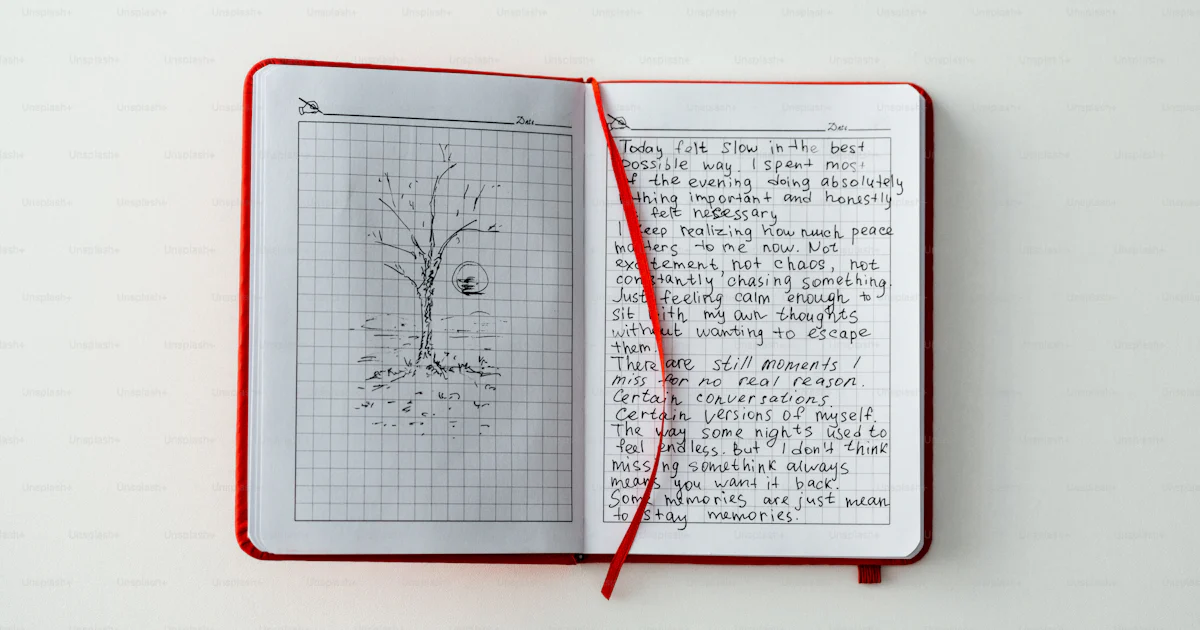 Date
Date
Today felt slow in the best
possible way. I spent most
the evening doing absolutely
important and honestly
felt necessary
I keep realizing how much peace
matters to me now. Not
excitement, not chaos, not
constantly chasing something.
Just feeling calm enough to
sit with my own thoughts
without wanting to escape
them.
There are still moments I
miss for no real reason.
Certain conversations.
Certain versions of myself.
The way some nights used to
feel endless. But I don't think
missing somethink always
means you want it back.
Some memories are just mean
to stay memories.
Unsplash+